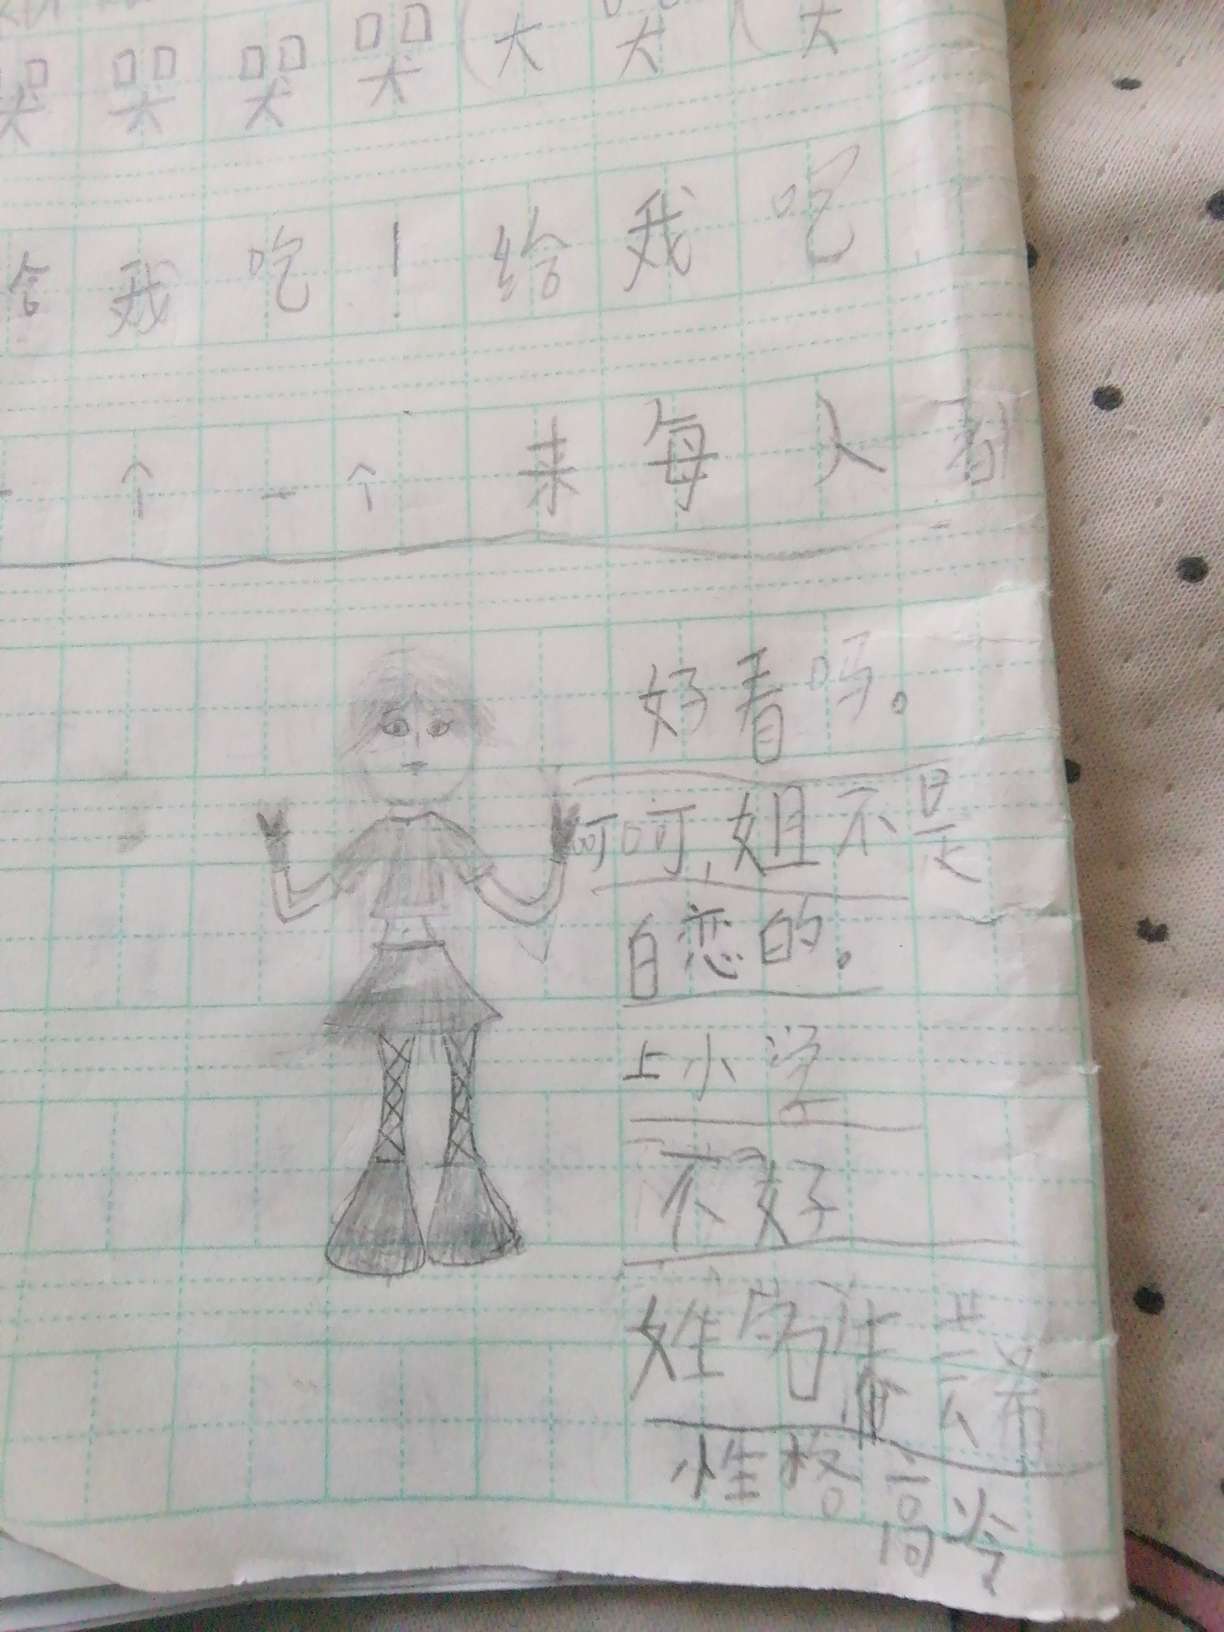 哭 哭 哭 哭 (大 哭 (大
给 我 吃 ! 给 我 吃
一 个 一 个 来 每 人 都
好看吗。
呵呵,姐不是
自恋的。
上小学
不好
姓名
性格高冷